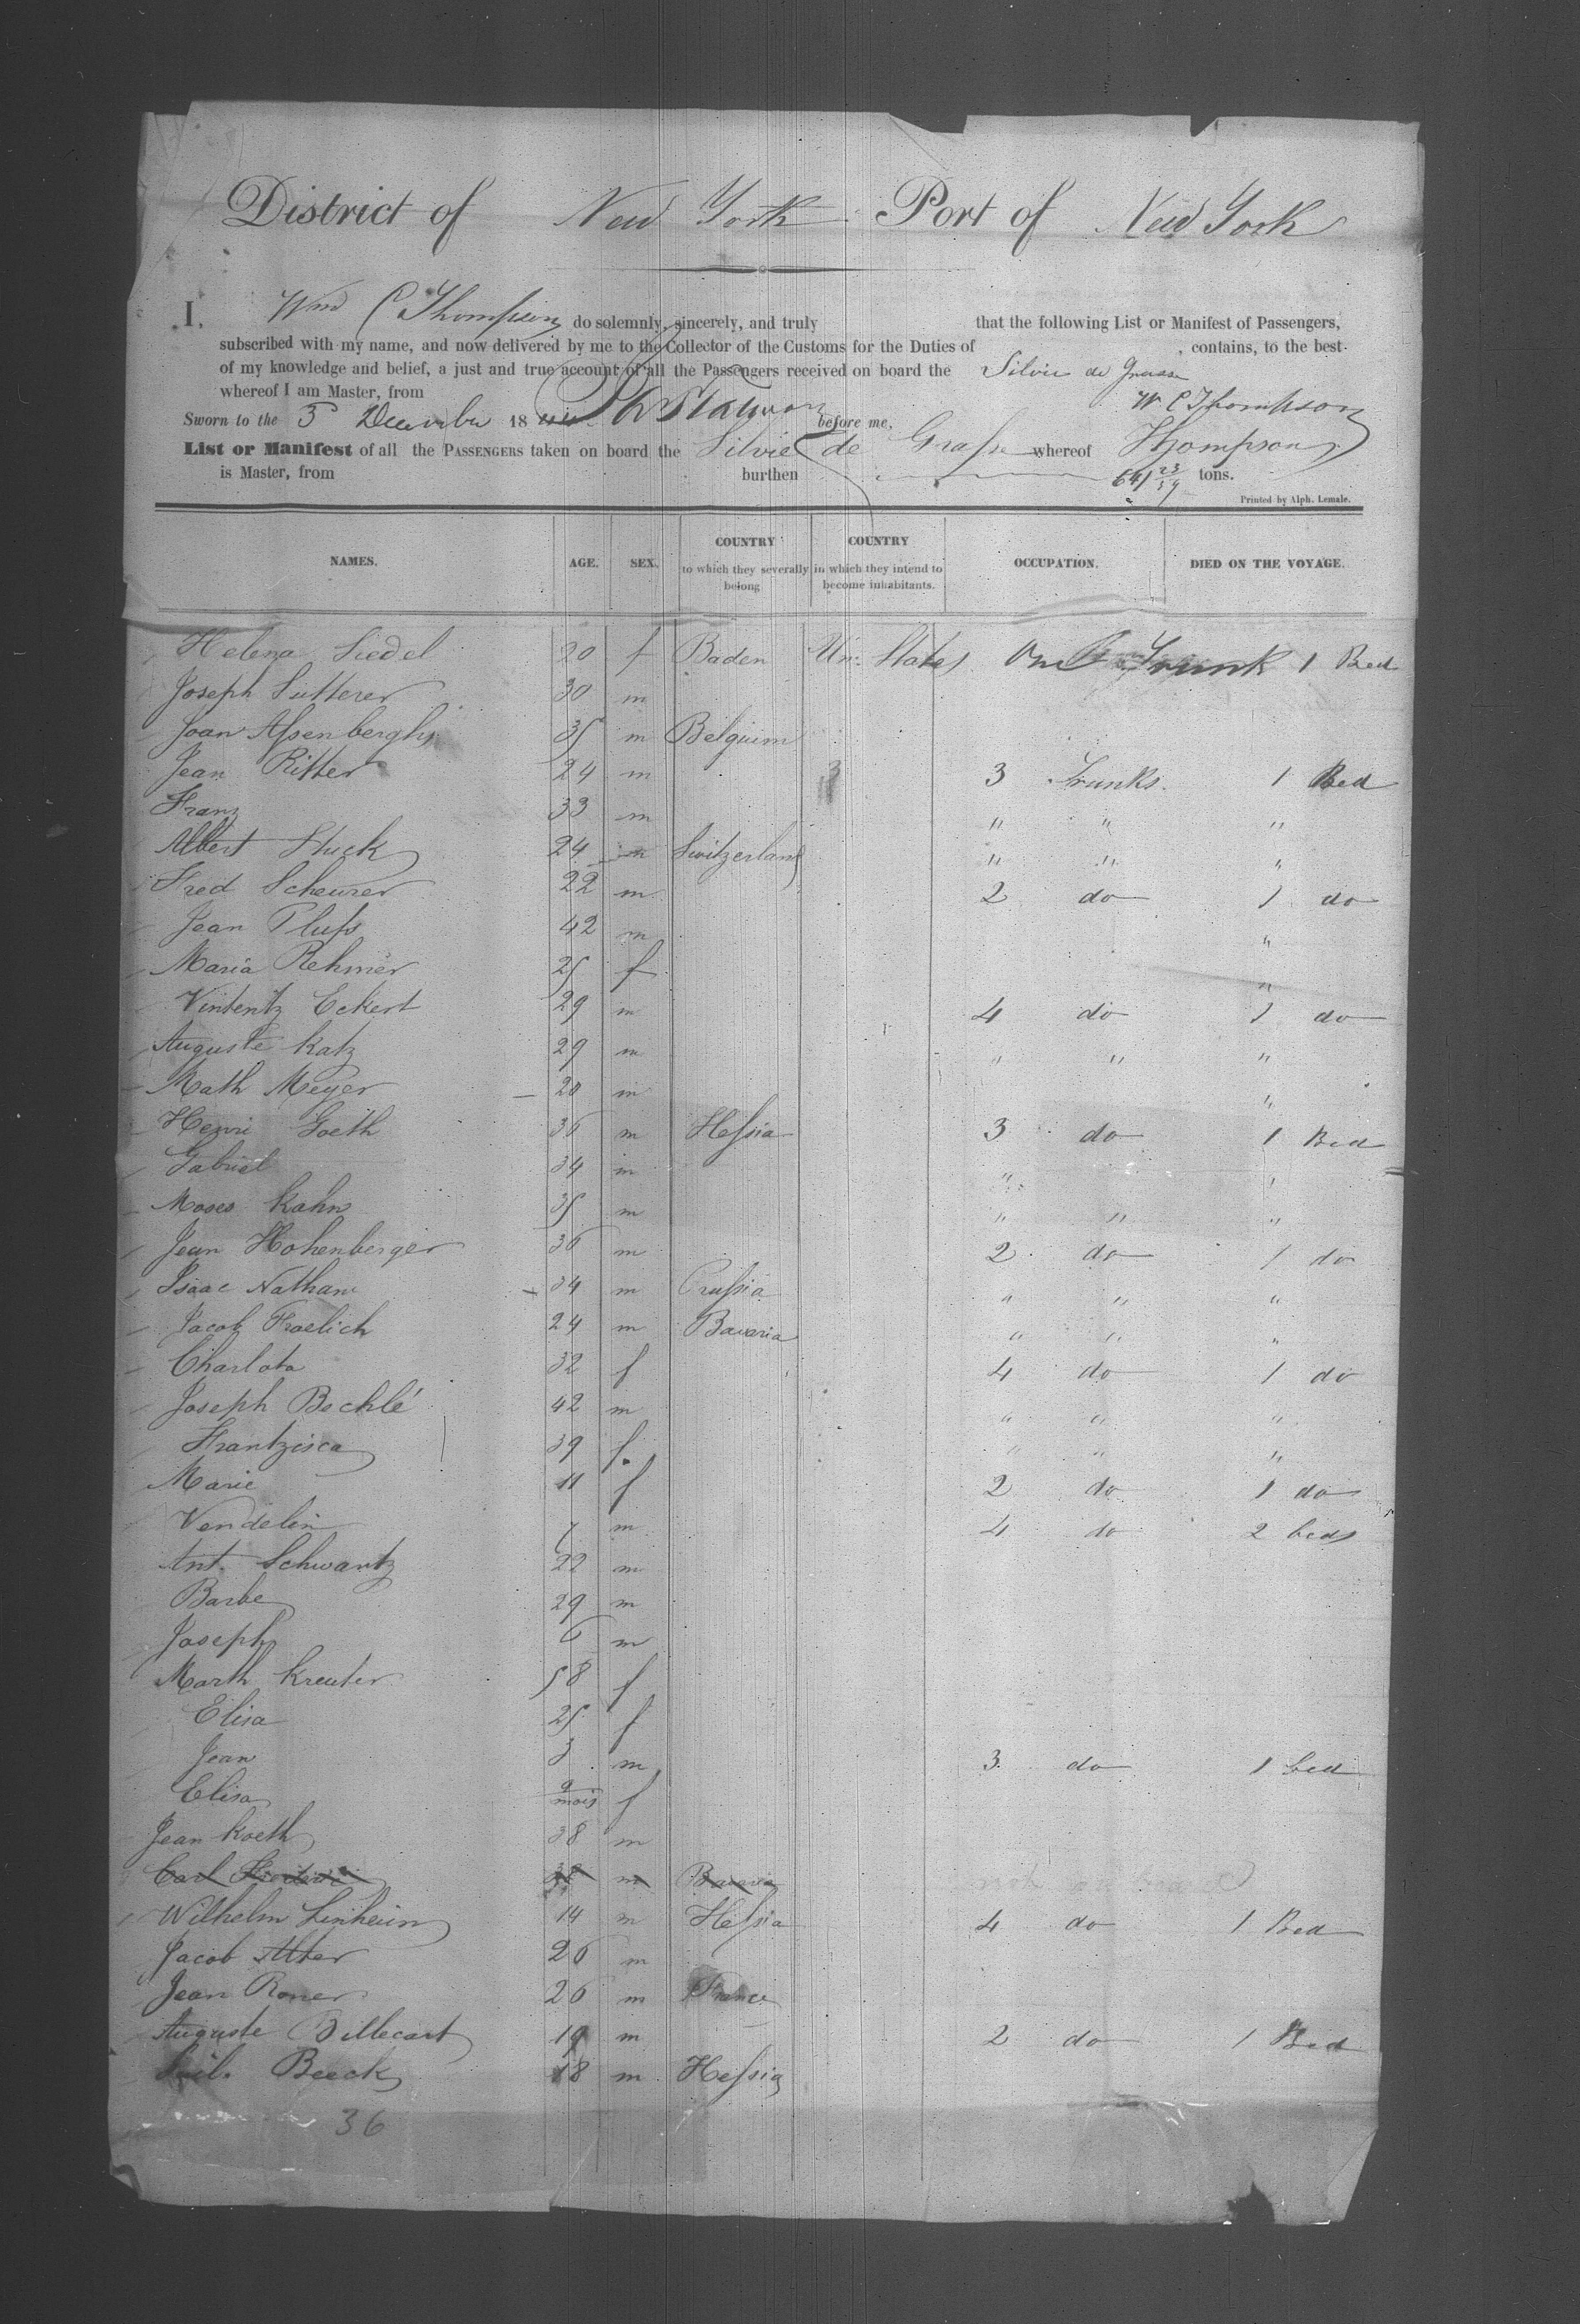 District of New York Port of New York
I, Wm C Thompson do solemnly, sincerely, and truly that the following List or Manifest of Passengers,
subscribed with my name, and now delivered by me to the Collector of the Customs for the Duties of , contains, to the best
of my knowledge and belief, a just and true account of all the Passengers received on board the Silvie de Grasse
whereof I am Master, from W C Thompson
Sworn to the 5 December 18 before me,
List or Manifest of all the PASSENGERS taken on board the Silvie de Grasse whereof Thompson
is Master, from burthen 641 tons.
Printed by Alph. Lemale.
NAMES. AGE. SEX. COUNTRY to which they severally belong COUNTRY in which they intend to become inhabitants. OCCUPATION. DIED ON THE VOYAGE.
Helena Siedel 20 f Baden Un: States One Trunk 1 Bed
Joseph Sutterer 30 m
Joan Assenberghs 35 m Belgium
Jean Ritter 24 m 3 Trunks 1 Bed
Franz 33 m " " "
Albert Stuck 24 m Switzerland " " "
Fred Scheurer 22 m 2 do 1 do
Jean Pluss 42 m "
Maria Rehmer 25 f "
Vintentz Eckert 29 m 4 do 1 do
Auguste Katz 29 m " " "
Math Meyer 20 m "
Henri Goeth 36 m Hessia 3 do 1 Bed
Gabriel 34 m " "
Moses Kahn 35 m " " "
Jean Hohenberger 36 m 2 do 1 do
Isaac Nathan 34 m Prussia " " "
Jacob Froelich 24 m Bavaria " " "
Charlota 32 f 4 do 1 do
Joseph Bechlé 42 m " " "
Frantzisca 39 f. " " "
Marie 11 f 2 do 1 do
Vendelin 7 m 4 do 2 beds
Ant. Schwartz 22 m
Barbe 29 m
Joseph 6 m
Marth Kreuter 58 f
Elisa 25 f
Jean 3 m 3 do 1 bed
Elisa 9 mois f
Jean Koeth 38 m
Carl m Bavaria
Wilhelm Linheim 14 m Hessia 4 do 1 Bed
Jacob Alter 26 m
Jean Roner 26 m France
Auguste Billecart 19 m 2 do 1 Bed
Beeck 18 m Hessia
36